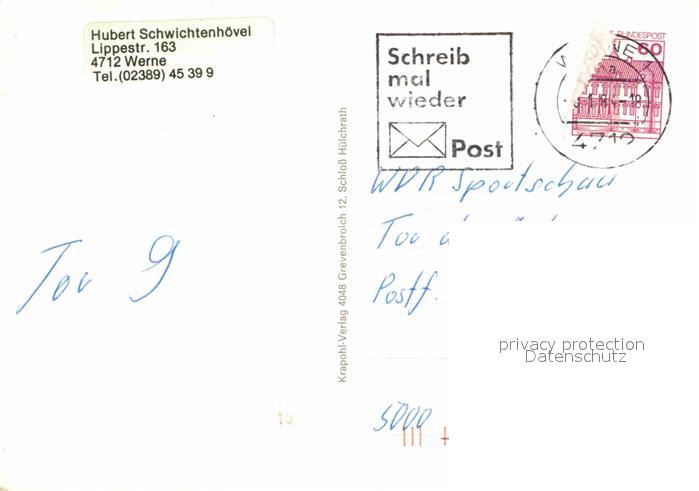 Hubert Schwichtenhövel
Lippestr. 163
4712 Werne
Tel.(02389) 45 39 9
Schreib
mal
wieder
Post
BUNDESPOST
60
4712
Krapohl-Verlag 4048 Grevenbroich 12, Schloß Hülchrath
Tor 9
WDR Sportschau
Tor
Postf.
privacy protection
Datenschutz
5000
10